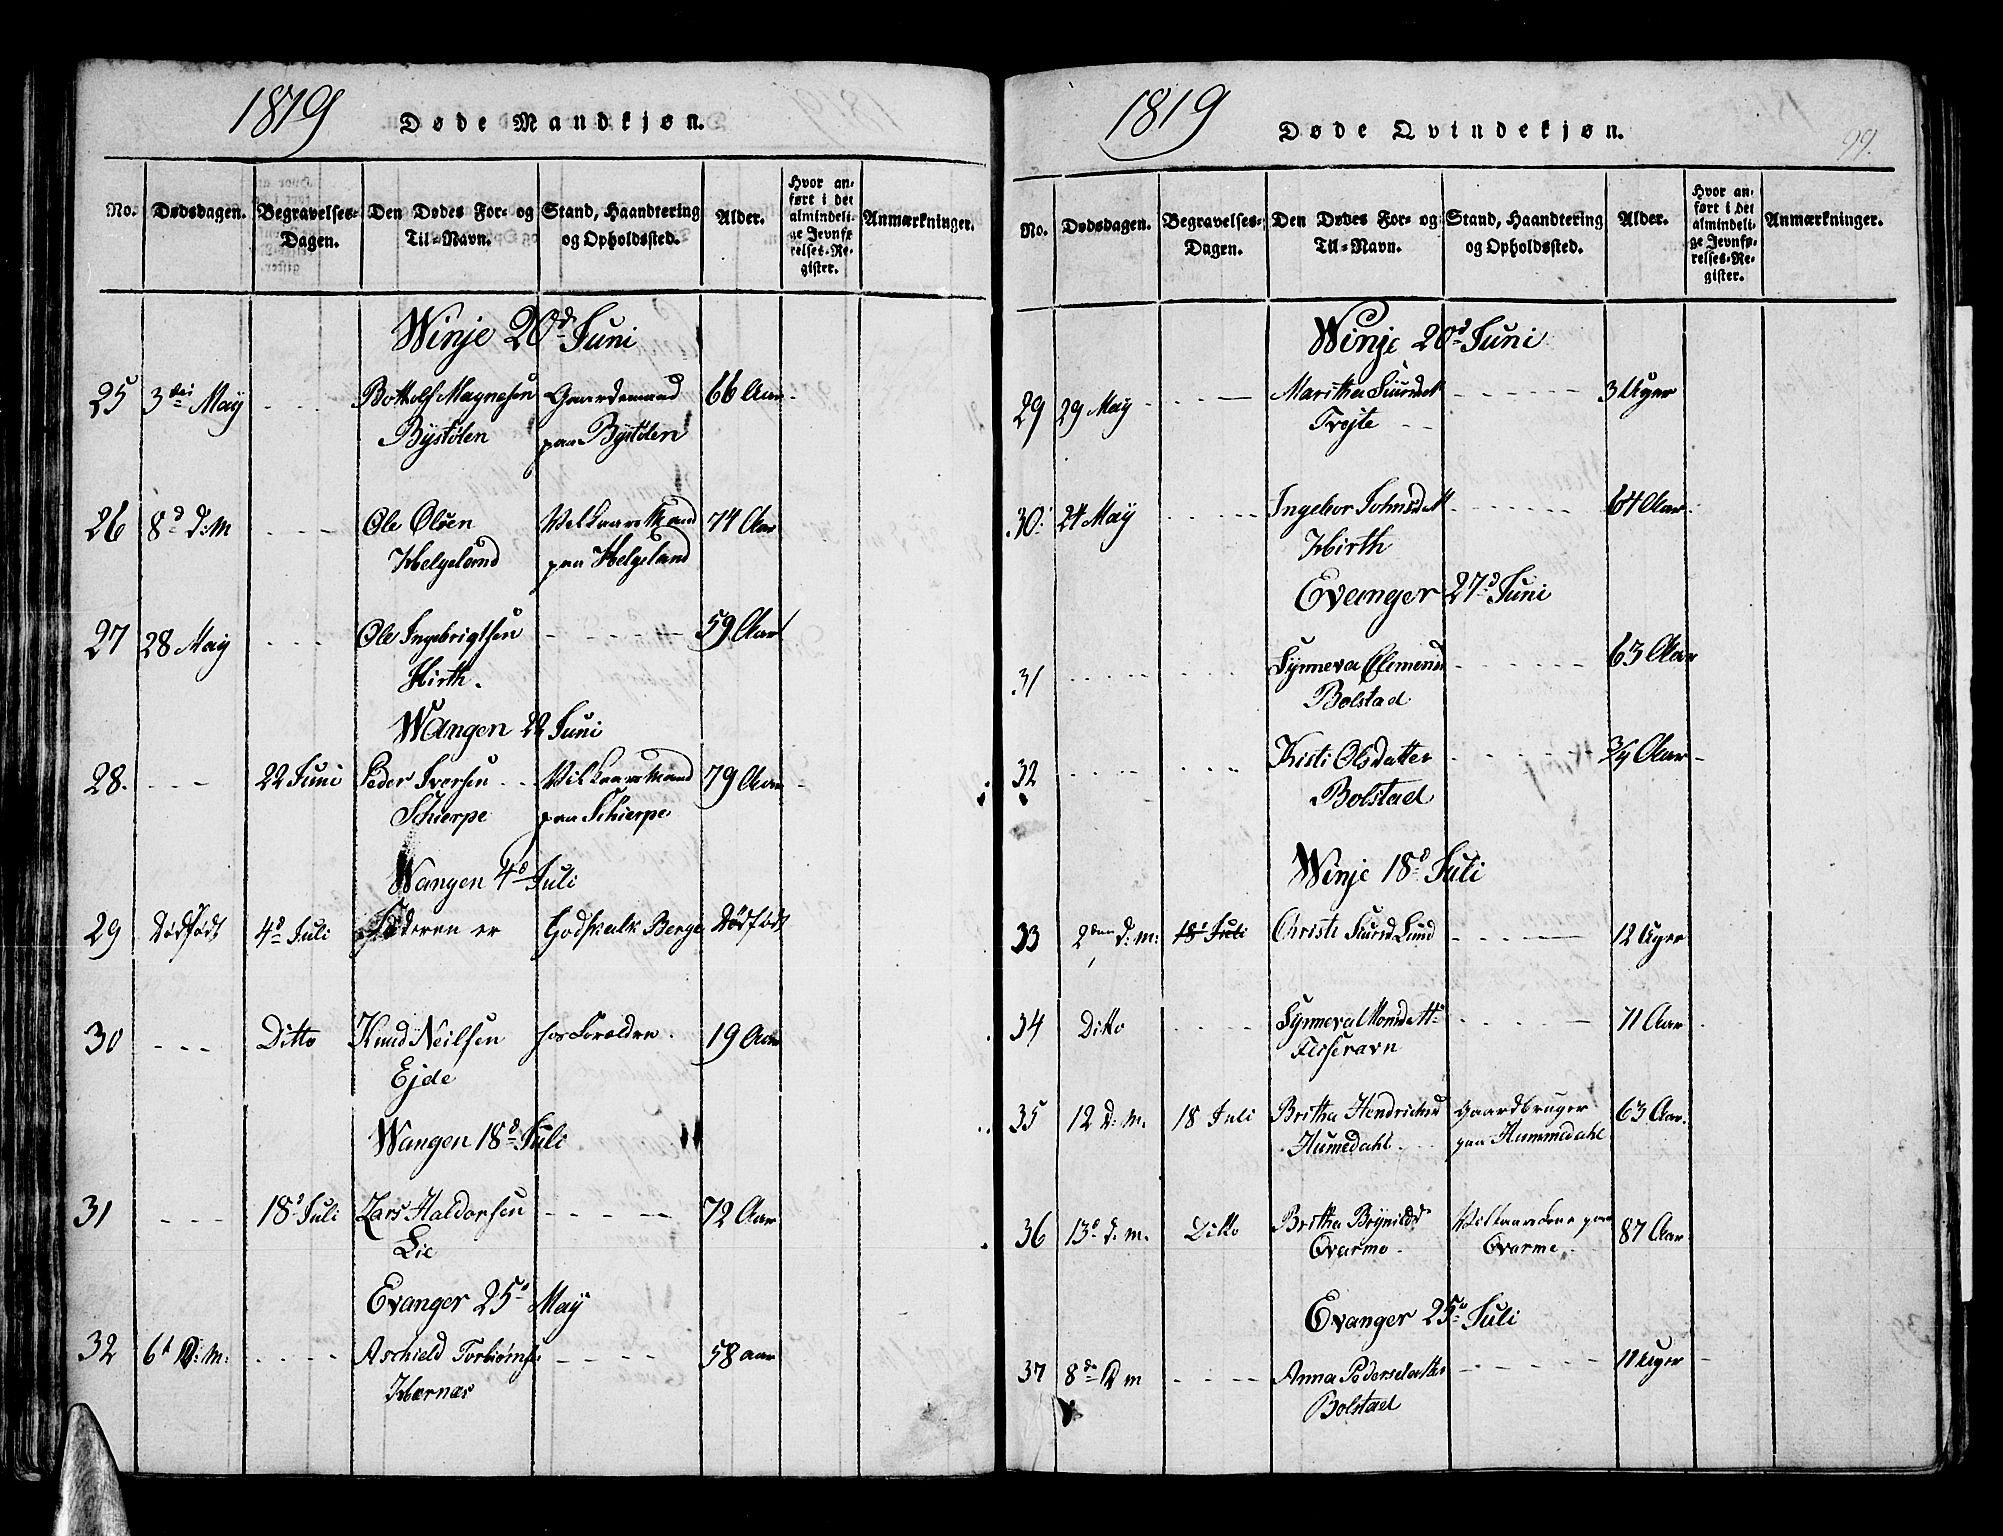 1819
Døde Mandkjøn.
No. Dødsdagen. Begravelses-Dagen. Den Dødes For- og Til-Navn. Stand, Haandtering og Opholdssted. Alder. Hvor anført i det almindelige Jevnførelses-Register. Anmærkninger.
Winje 20d Juni
25 3die May - - - Bottolf Magnesen Gaardemand 66 Aar -
Bystølen paa Bystølen
26 8d d:M - - - Ole Olsen Vilkaars Mand 74 Aar
Helgeland paa Helgeland
27 28 May - - - Ole Ingebrigtsen - - - - - 59 Aar
Hirth.
Wangen 22 Juni
28. - - - 22 Juni Peder Iversen Vilkaarsmand 79 Aar
Schierpe paa Schierpe
Wangen 4d Juli
29 Dødfødt 4d Juli Faderen er Godskalk Berge Dødfødt
30 - - - Ditto Knud Neilsen hos Forældre. 19 Aar
Ejde
Wangen 18d Juli
31 - - - 18d Juli Lars Haldorsen - - - - - 72 Aar
Lie
Evanger 25d May
32 6d D:M: - - - - Aschield Torbiørns: - - - - 58 aar
Hærnæs
1819
Døde Qvindekjøn.
99.
No. Dødsdagen. Begravelses-Dagen. Den Dødes For- og Til-Navn. Stand, Haandtering og Opholdssted. Alder. Hvor anført i det almindelige Jevnførelses-Register. Anmærkninger.
Winje 20d Juni
29 29 May - - - - Maritha Siursdatt - - - - - 3 Uger
Tvejte - -
30. 24 May - - - - Ingebor Johnsdatt - - - - - 64 Aar.
Hirth
Evanger 27d Juni
31 - - - - - - - - Synneva Clemensd - - - - - 63 Aar
Bolstad
32 - - - - - - - - Kristi Olsdatter - - - - - 3/4 Aar -
Bolstad
Winje 18d Juli
33 2den d:m: 18d Juli Christi Siursd Lund - - - - - 12 Uger
34 Ditto - - - - Synneva Monsdatt: - - - - - 71 Aar
Flisеravn
35 12 D:M. 18 Juli Britha Hendrichsd Gaardbruger 63 Aar.
Humedahl. paa Hummedahl
36 13d d.m. Ditto Britha Brynilds Vilkaarskone paa 87 Aar
Qvarme. Qvarme
Evanger 25d Juli
37 8de D m - - - - Anna Pedersdatter - - - - - 11 Uger -
Bolstad